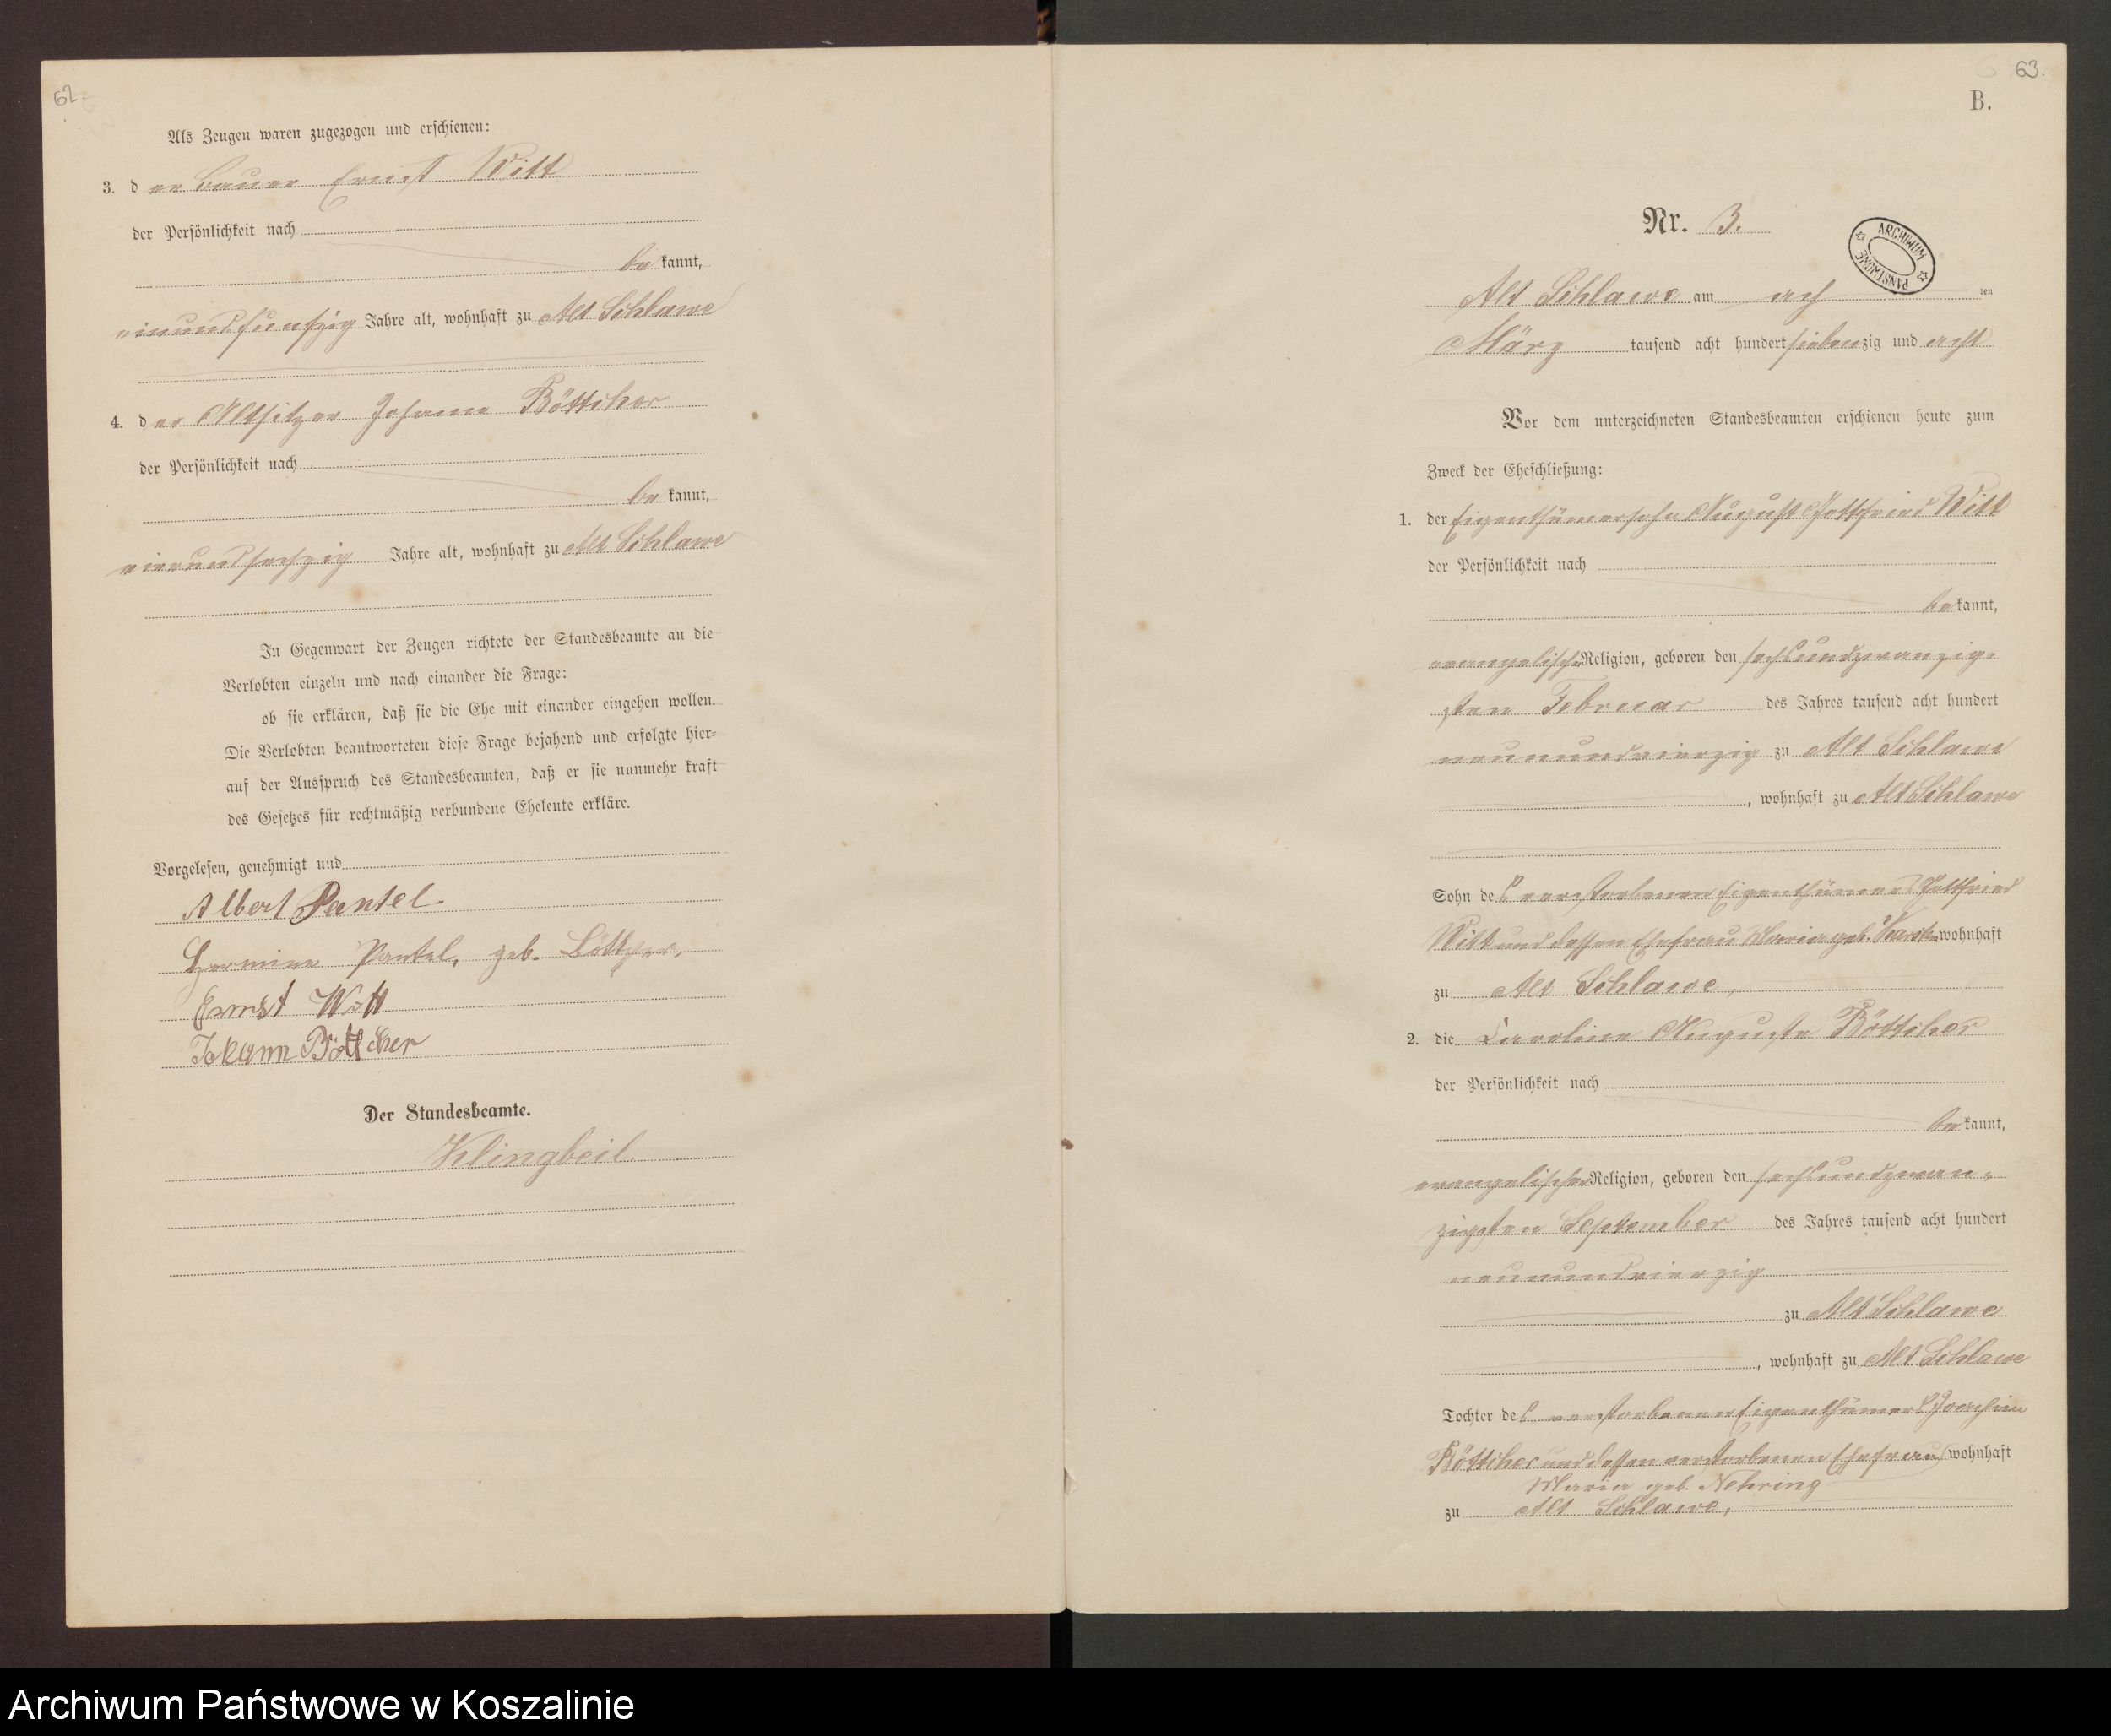 62.
Als Zeugen waren zugezogen und erschienen:
3. der Bauer Ernst Witt
der Persönlichkeit nach
bekannt,
einundfunfzig Jahre alt, wohnhaft zu Alt Schlawe
4. der Altsitzer Johann Böttcher
der Persönlichkeit nach
bekannt,
vierundsechzig Jahre alt, wohnhaft zu Alt Schlawe
In Gegenwart der Zeugen richtete der Standesbeamte an die
Verlobten einzeln und nach einander die Frage:
ob sie erklären, daß sie die Ehe mit einander eingehen wollen.
Die Verlobten beantworteten diese Frage bejahend und erfolgte hier=
auf der Ausspruch des Standesbeamten, daß er sie nunmehr kraft
des Gesetzes für rechtmäßig verbundene Eheleute erkläre.
Vorgelesen, genehmigt und
Albert Pantel.
Hermine Pantel, geb. Böttcher,
Ernst Witt
Johann Böttcher
Der Standesbeamte.
Klingbeil.
63.
B.
Nr. 3.
ARCHIWUM PAŃSTWOWE
Alt Schlawe am ach ten
März tausend acht hundert siebenzig und acht
Vor dem unterzeichneten Standesbeamten erschienen heute zum
Zweck der Eheschließung:
1. der Eigenthümersohn August Gottfried Witt
der Persönlichkeit nach
bekannt,
evangelischer Religion, geboren den sechsundzwanzig=
sten Februar des Jahres tausend acht hundert
neunundvierzig zu Alt Schlawe
, wohnhaft zu Alt Schlawe
Sohn des verstorbenen Eigenthümers Gottfried
Witt und dessen Ehefrau Maria geb. wohnhaft
zu Alt Schlawe,
2. die Caroline Auguste Böttcher
der Persönlichkeit nach
bekannt,
evangelischer Religion, geboren den sechsundzwan=
zigsten September des Jahres tausend acht hundert
neunundvierzig
zu Alt Schlawe
, wohnhaft zu Alt Schlawe
Tochter des verstorbenen Eigenthümers Joachim
Böttcher und dessen verstorbenen Ehefrau wohnhaft
Maria geb. Nehring
zu Alt Schlawe,
Archiwum Państwowe w Koszalinie